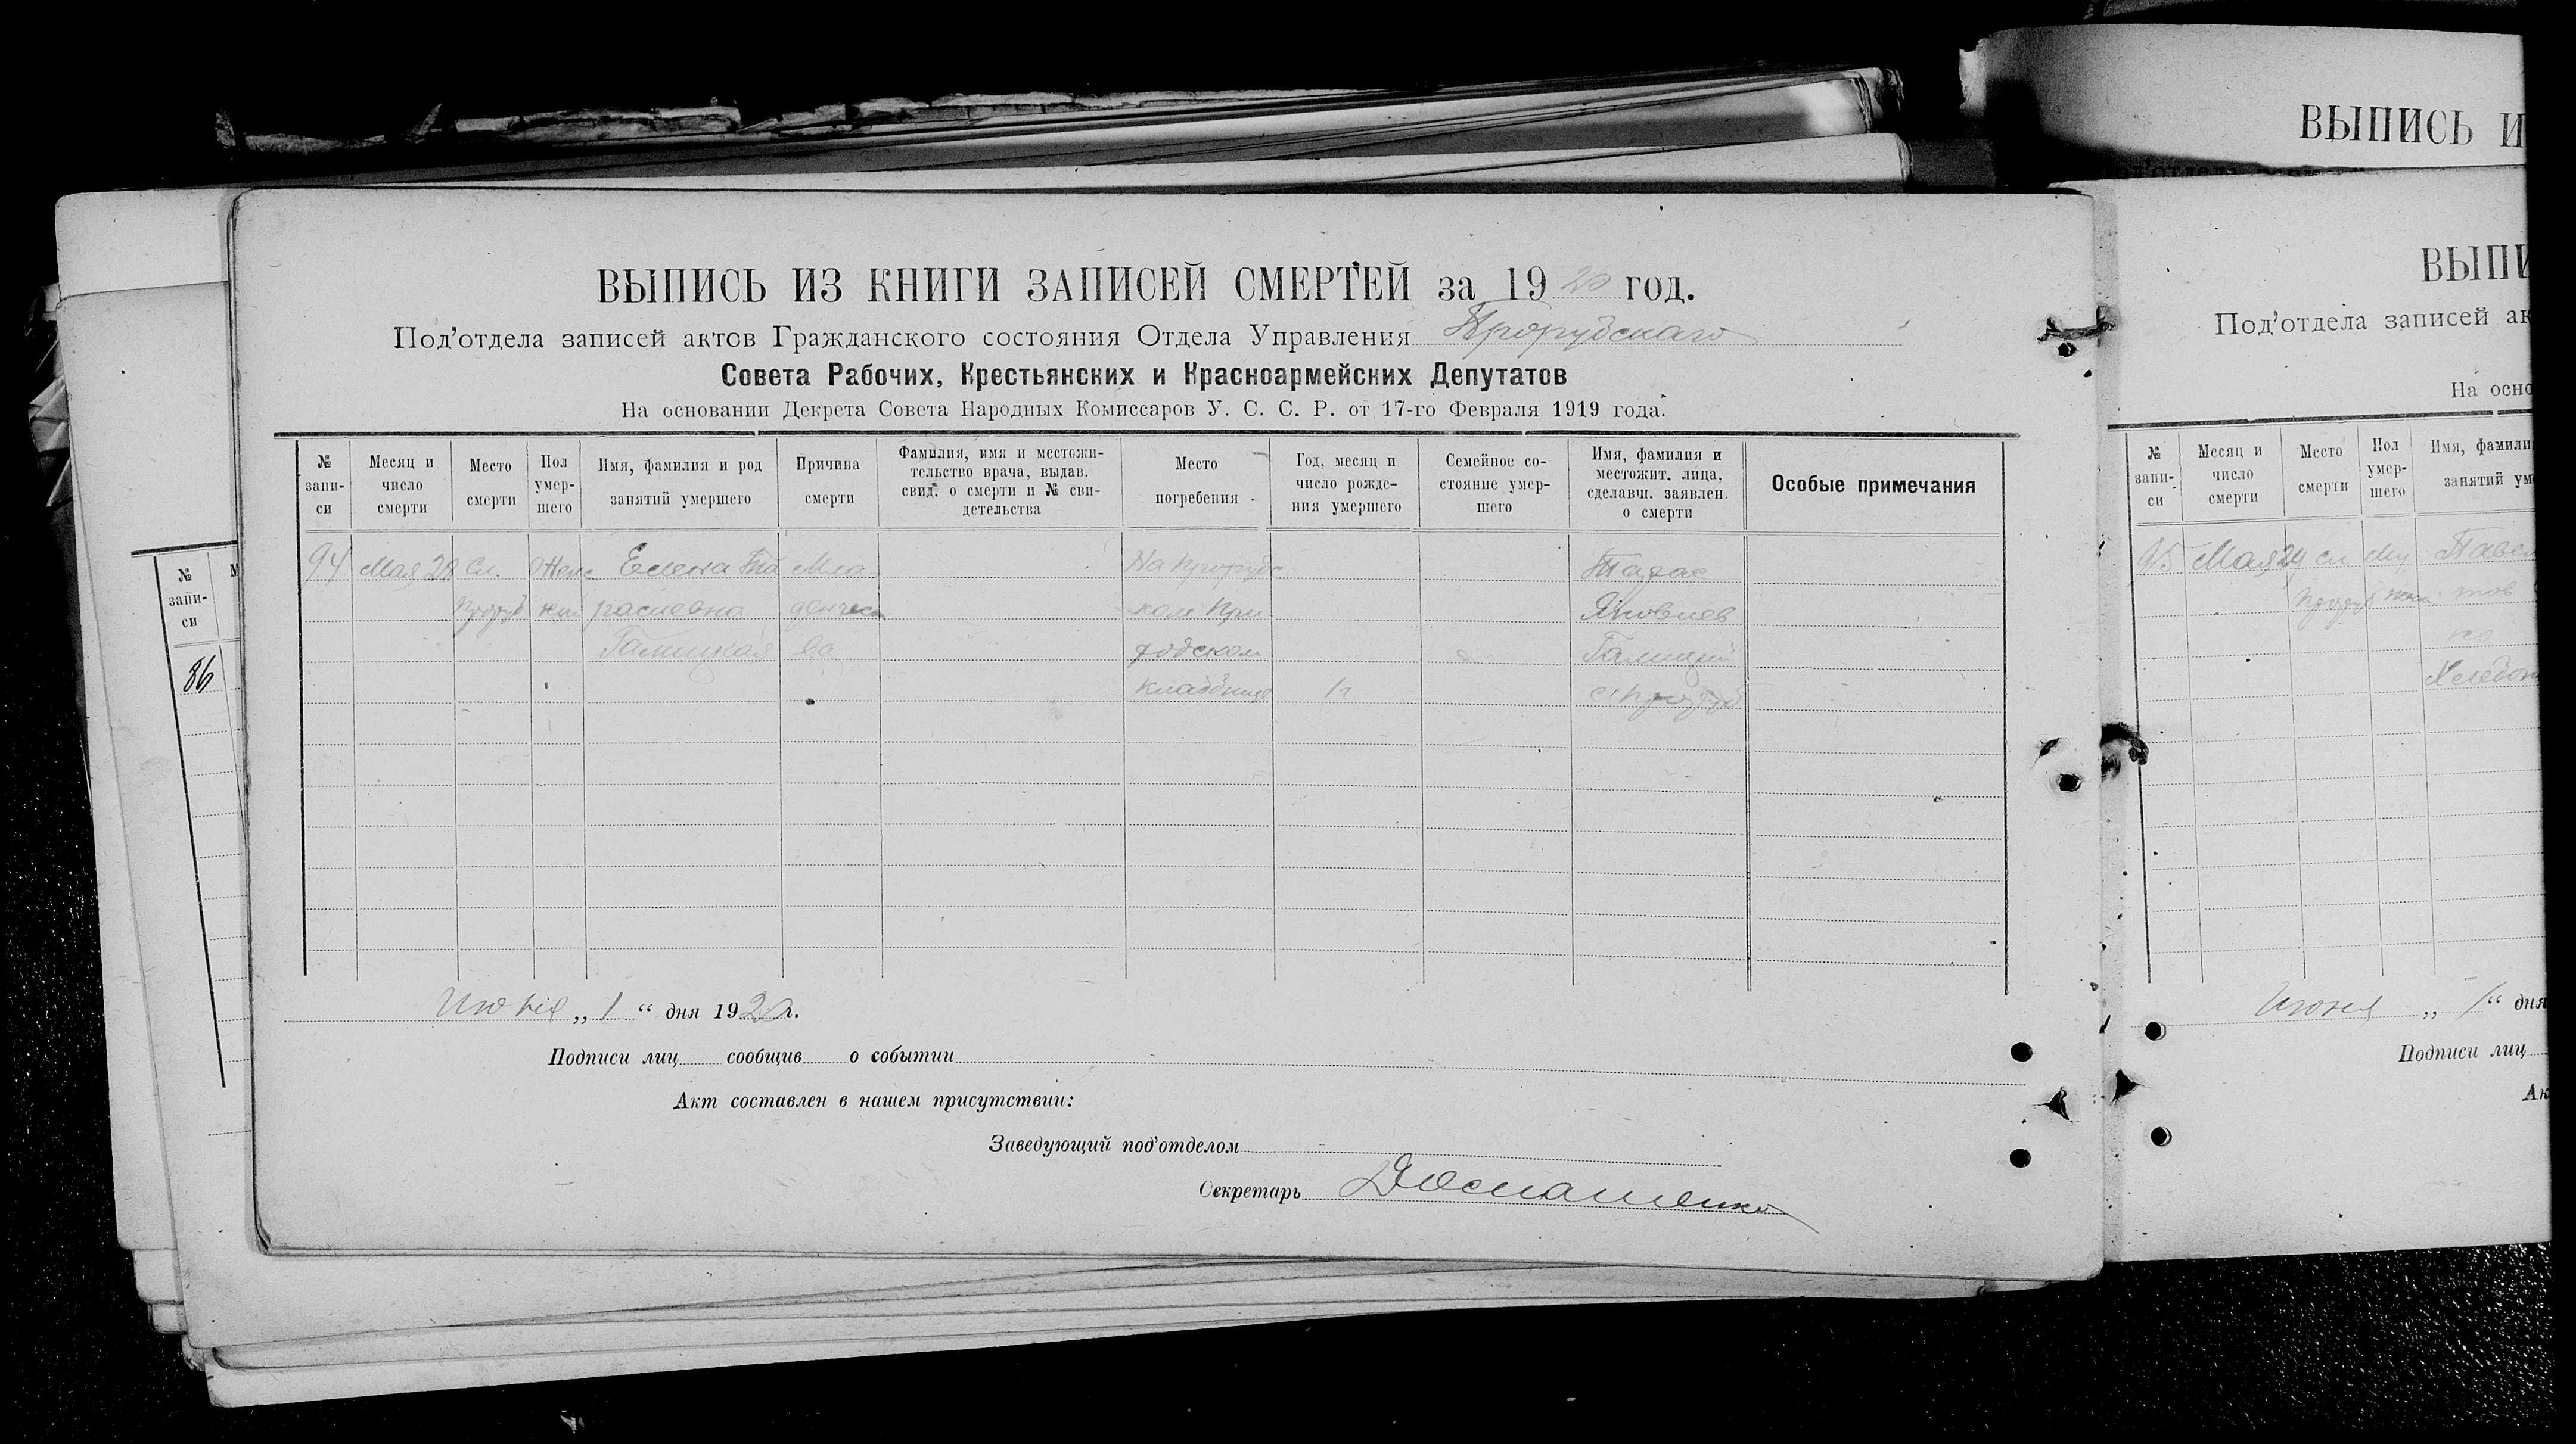 ВЫПИСЬ И
ВЫПИСЬ ИЗ КНИГИ ЗАПИСЕЙ СМЕРТЕЙ за 1920 год.
Под'отдела записей актов Гражданского состояния Отдела Управления Прорубскаго
Совета Рабочих, Крестьянских и Красноармейских Депутатов
На основании Декрета Совета Народных Комиссаров У. С. С. Р. от 17-го Февраля 1919 года.
№ запи-си
Месяц и число смерти
Место смерти
Пол умер-шего
Имя, фамилия и род занятий умершего
Причина смерти
Фамилия, имя и местожи-тельство врача, выдав. свид. о смерти и № сви-детельства
Место погребения
Год, месяц и число рожде-ния умершего
Семейное со-стояние умер-шего
Имя, фамилия и местожит. лица, сделавш. заявлен. о смерти
Особые примечания
94 Мая 28 Сл. Женс Елена Та Мла На Прорубс Тарас
Проруб кий расиевна денческ ком При Яковлев
Галицкая ва ходском Галицкий
кладбище 1г с. Проруб
Июня „ 1 “ дня 1920 г.
Подписи лиц сообщив о событии
Акт составлен в нашем присутствии:
Заведующий под'отделом
Секретарь
№ запи-си
86
ВЫПИ
Под'отдела записей ак
На осно
№ запи-си
Месяц и число смерти
Место смерти
Пол умер-шего
Имя, фамили
занятий ум
95 Мая 29 сл Му Павел
Проруб тов
Хлебоп
Июня „ 1 “ дня
Подписи лиц
Ак